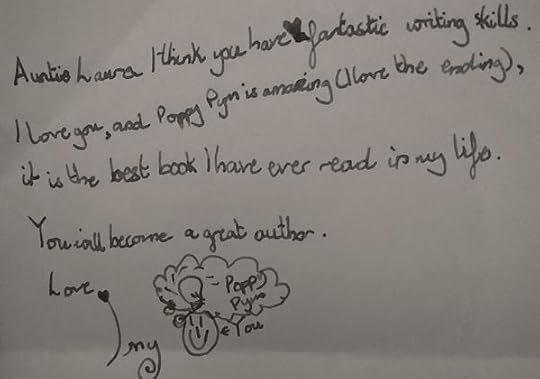 Auntie Laura I think you have fantastic writing skills.
I love you, and Poppy Pym is amazing (I love the ending),
it is the best book I have ever read in my life.
You will become a great author.
Love
Poppy
Pym
You